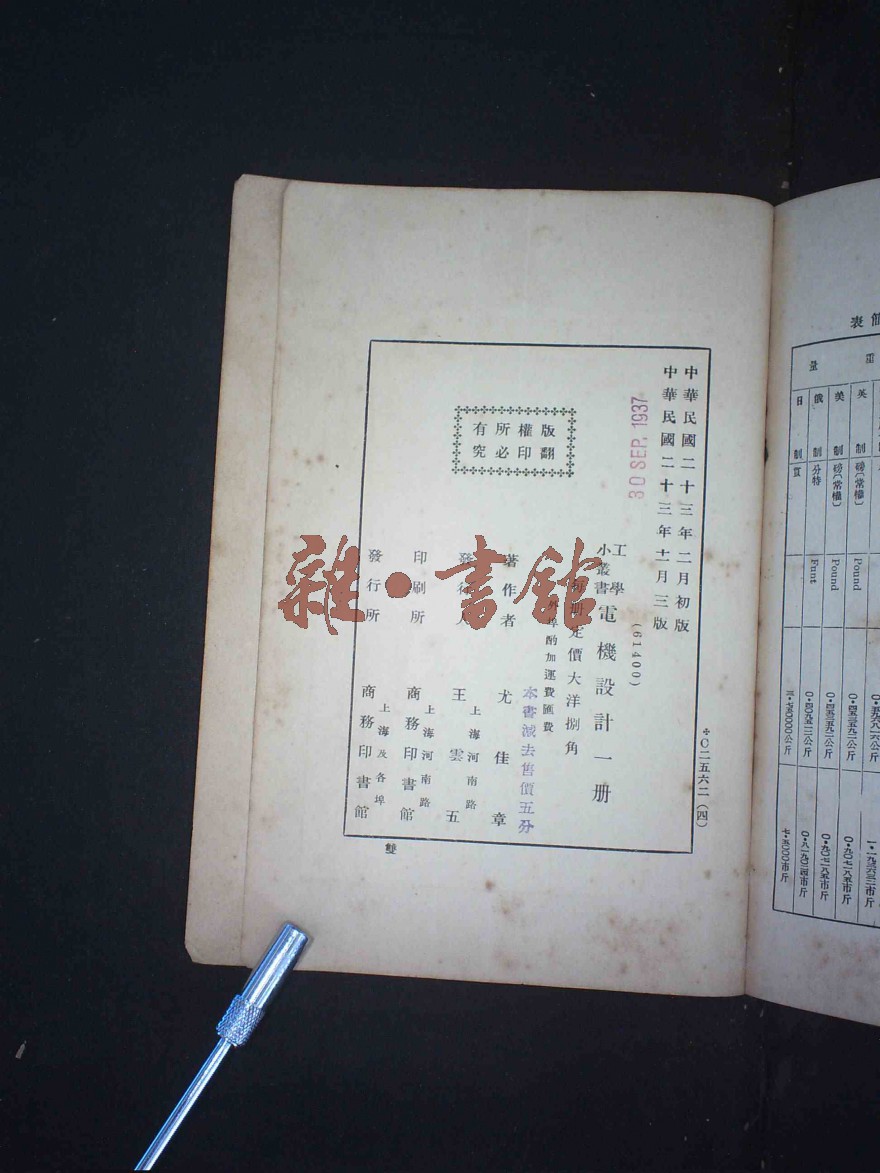 中華民國二十三年二月初版
中華民國二十三年十一月三版
30 SEP. 1937
(61400)
工學小叢書 電機設計一册
每册定價大洋捌角
外埠酌加運費匯費
本書減去售價五分
著作者 尤佳章
發行人 王雲五
上海河南路
印刷所 商務印書館
上海河南路
發行所 商務印書館
上海及各埠
版權所有
翻印必究
✣C二五六二(四)
雙
雜·書館
簡表
重量
英制 磅(常權) Pound 0·四五三五九二公斤 0·九〇七一八五市斤
美制 磅(常權) Pound 0·四五三五九二公斤 0·九〇七一八五市斤
俄制 分特 Funt 0·四〇九五一二公斤 0·八一九〇二四市斤
日制 貫 三·七五〇〇〇〇公斤 七·五〇〇〇〇市斤